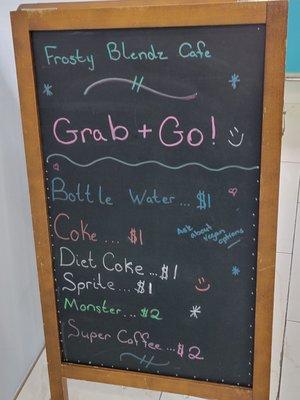 Frosty Blendz Cafe
Grab + Go!
Bottle Water... $1
Coke... $1
Ask about vegan options
Diet Coke... $1
Sprite... $1
Monster... $2
Super Coffee... $2